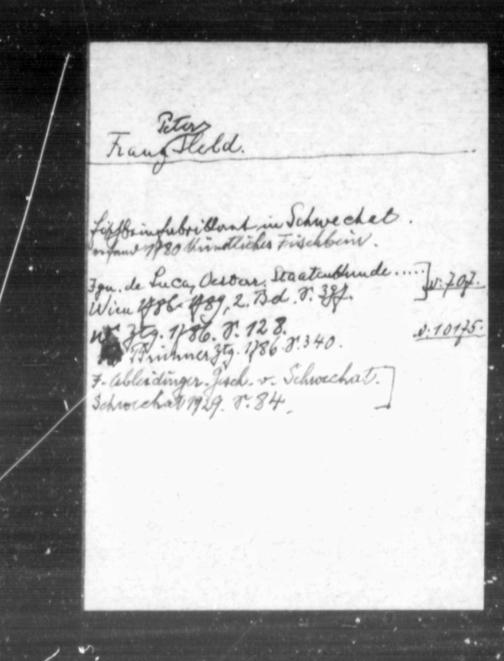 Peter
Franz Held.
Fischbeinfabrikant in Schwechat.
erfand 1780 künstliches Fischbein.
Ign. de Luca, Oesterr. Staatenkunde..... N. 707.
Wien 1786-1789, 2. Bd. S. 391.
Ztg. 1786. S. 128. N. 10175.
Brünner Ztg. 1786. S. 340.
F. Ableidinger. Gesch. v. Schwechat.
Schwechat 1929. S. 84.